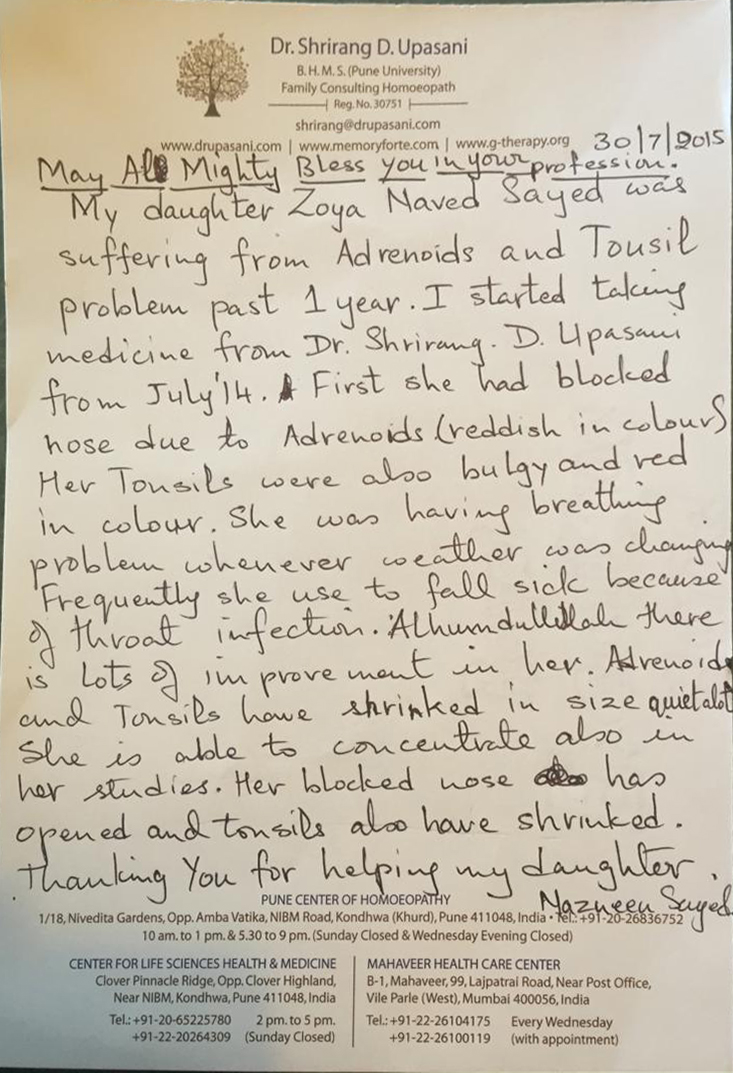 Dr. Shrirang D. Upasani
B. H. M. S. (Pune University)
Family Consulting Homoeopath
Reg. No. 30751
shrirang@drupasani.com
www.drupasani.com | www.memoryforte.com | www.g-therapy.org
30/7/2015
May All Mighty Bless you in your profession.
My daughter Zoya Naved Sayed was
suffering from Adrenoids and Tousil
problem past 1 year. I started taking
medicine from Dr. Shrirang. D. Upasani
from July'14. First she had blocked
nose due to Adrenoids (reddish in colour)
Her Tonsils were also bulgy and red
in colour. She was having breathing
problem whenever weather was changing
Frequently she use to fall sick because
of throat infection. Alhumdullillah there
is lots of improvement in her. Adrenoids
and Tonsils have shrinked in size quiet alot
She is able to concentrate also in
her studies. Her blocked nose has
opened and tonsils also have shrinked.
Thanking You for helping my daughter.
Nazneen Sayed
PUNE CENTER OF HOMOEOPATHY
1/18, Nivedita Gardens, Opp. Amba Vatika, NIBM Road, Kondhwa (Khurd), Pune 411048, India • Tel.: +91-20-26836752
10 am. to 1 pm. & 5.30 to 9 pm. (Sunday Closed & Wednesday Evening Closed)
CENTER FOR LIFE SCIENCES HEALTH & MEDICINE
Clover Pinnacle Ridge, Opp. Clover Highland,
Near NIBM, Kondhwa, Pune 411048, India
Tel.: +91-20-65225780 2 pm. to 5 pm.
+91-22-20264309 (Sunday Closed)
MAHAVEER HEALTH CARE CENTER
B-1, Mahaveer, 99, Lajpatrai Road, Near Post Office,
Vile Parle (West), Mumbai 400056, India
Tel.: +91-22-26104175 Every Wednesday
+91-22-26100119 (with appointment)